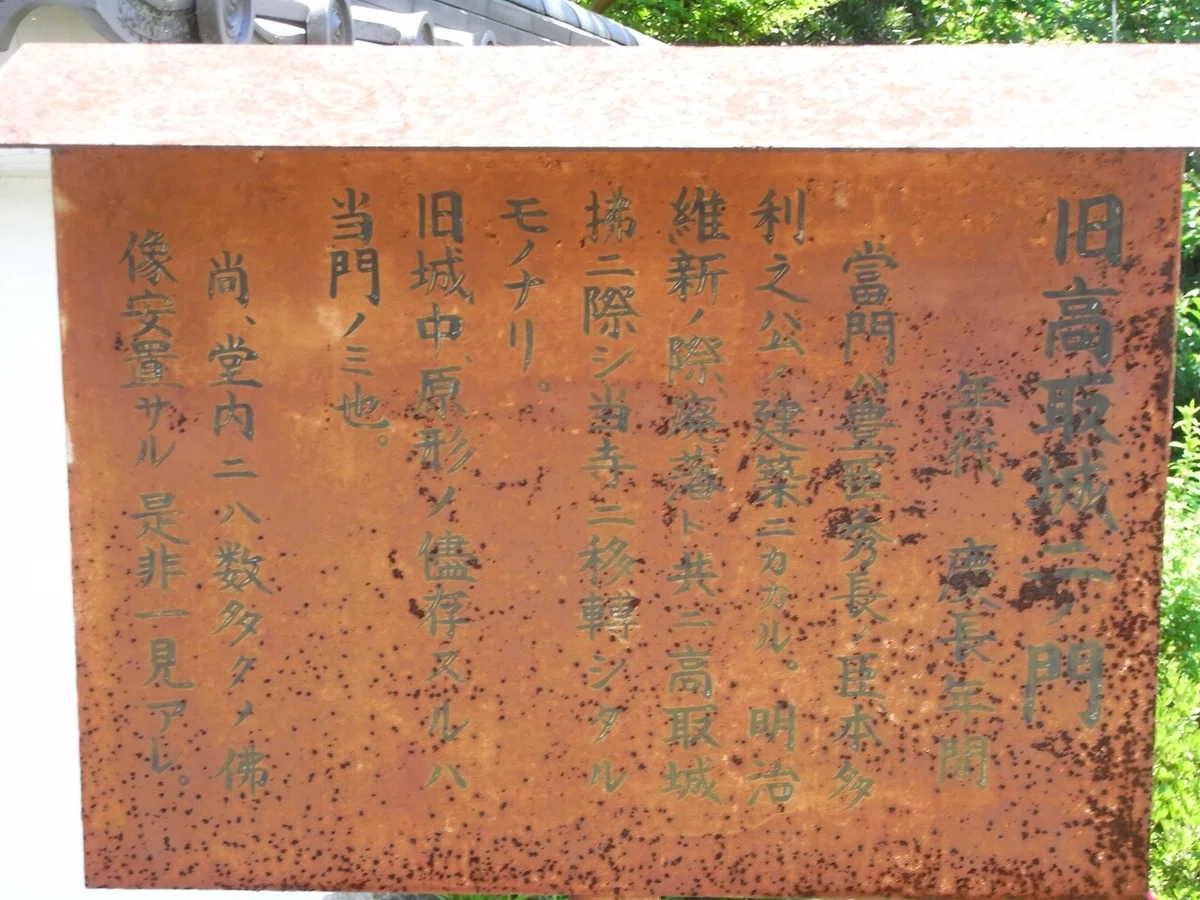 旧高取城二ノ門
年代、慶長年間
當門ハ豊臣秀長ノ臣本多
利之公ノ建築ニカカル。明治
維新ノ際、廃落ト共ニ高取城
拂ニ際シ当寺ニ移轉シタル
モノナリ。
旧城中、原形ノ儘存スルハ
当門ノミ也。
尚、堂内ニハ数多クノ佛
像安置サル是非一見アレ。